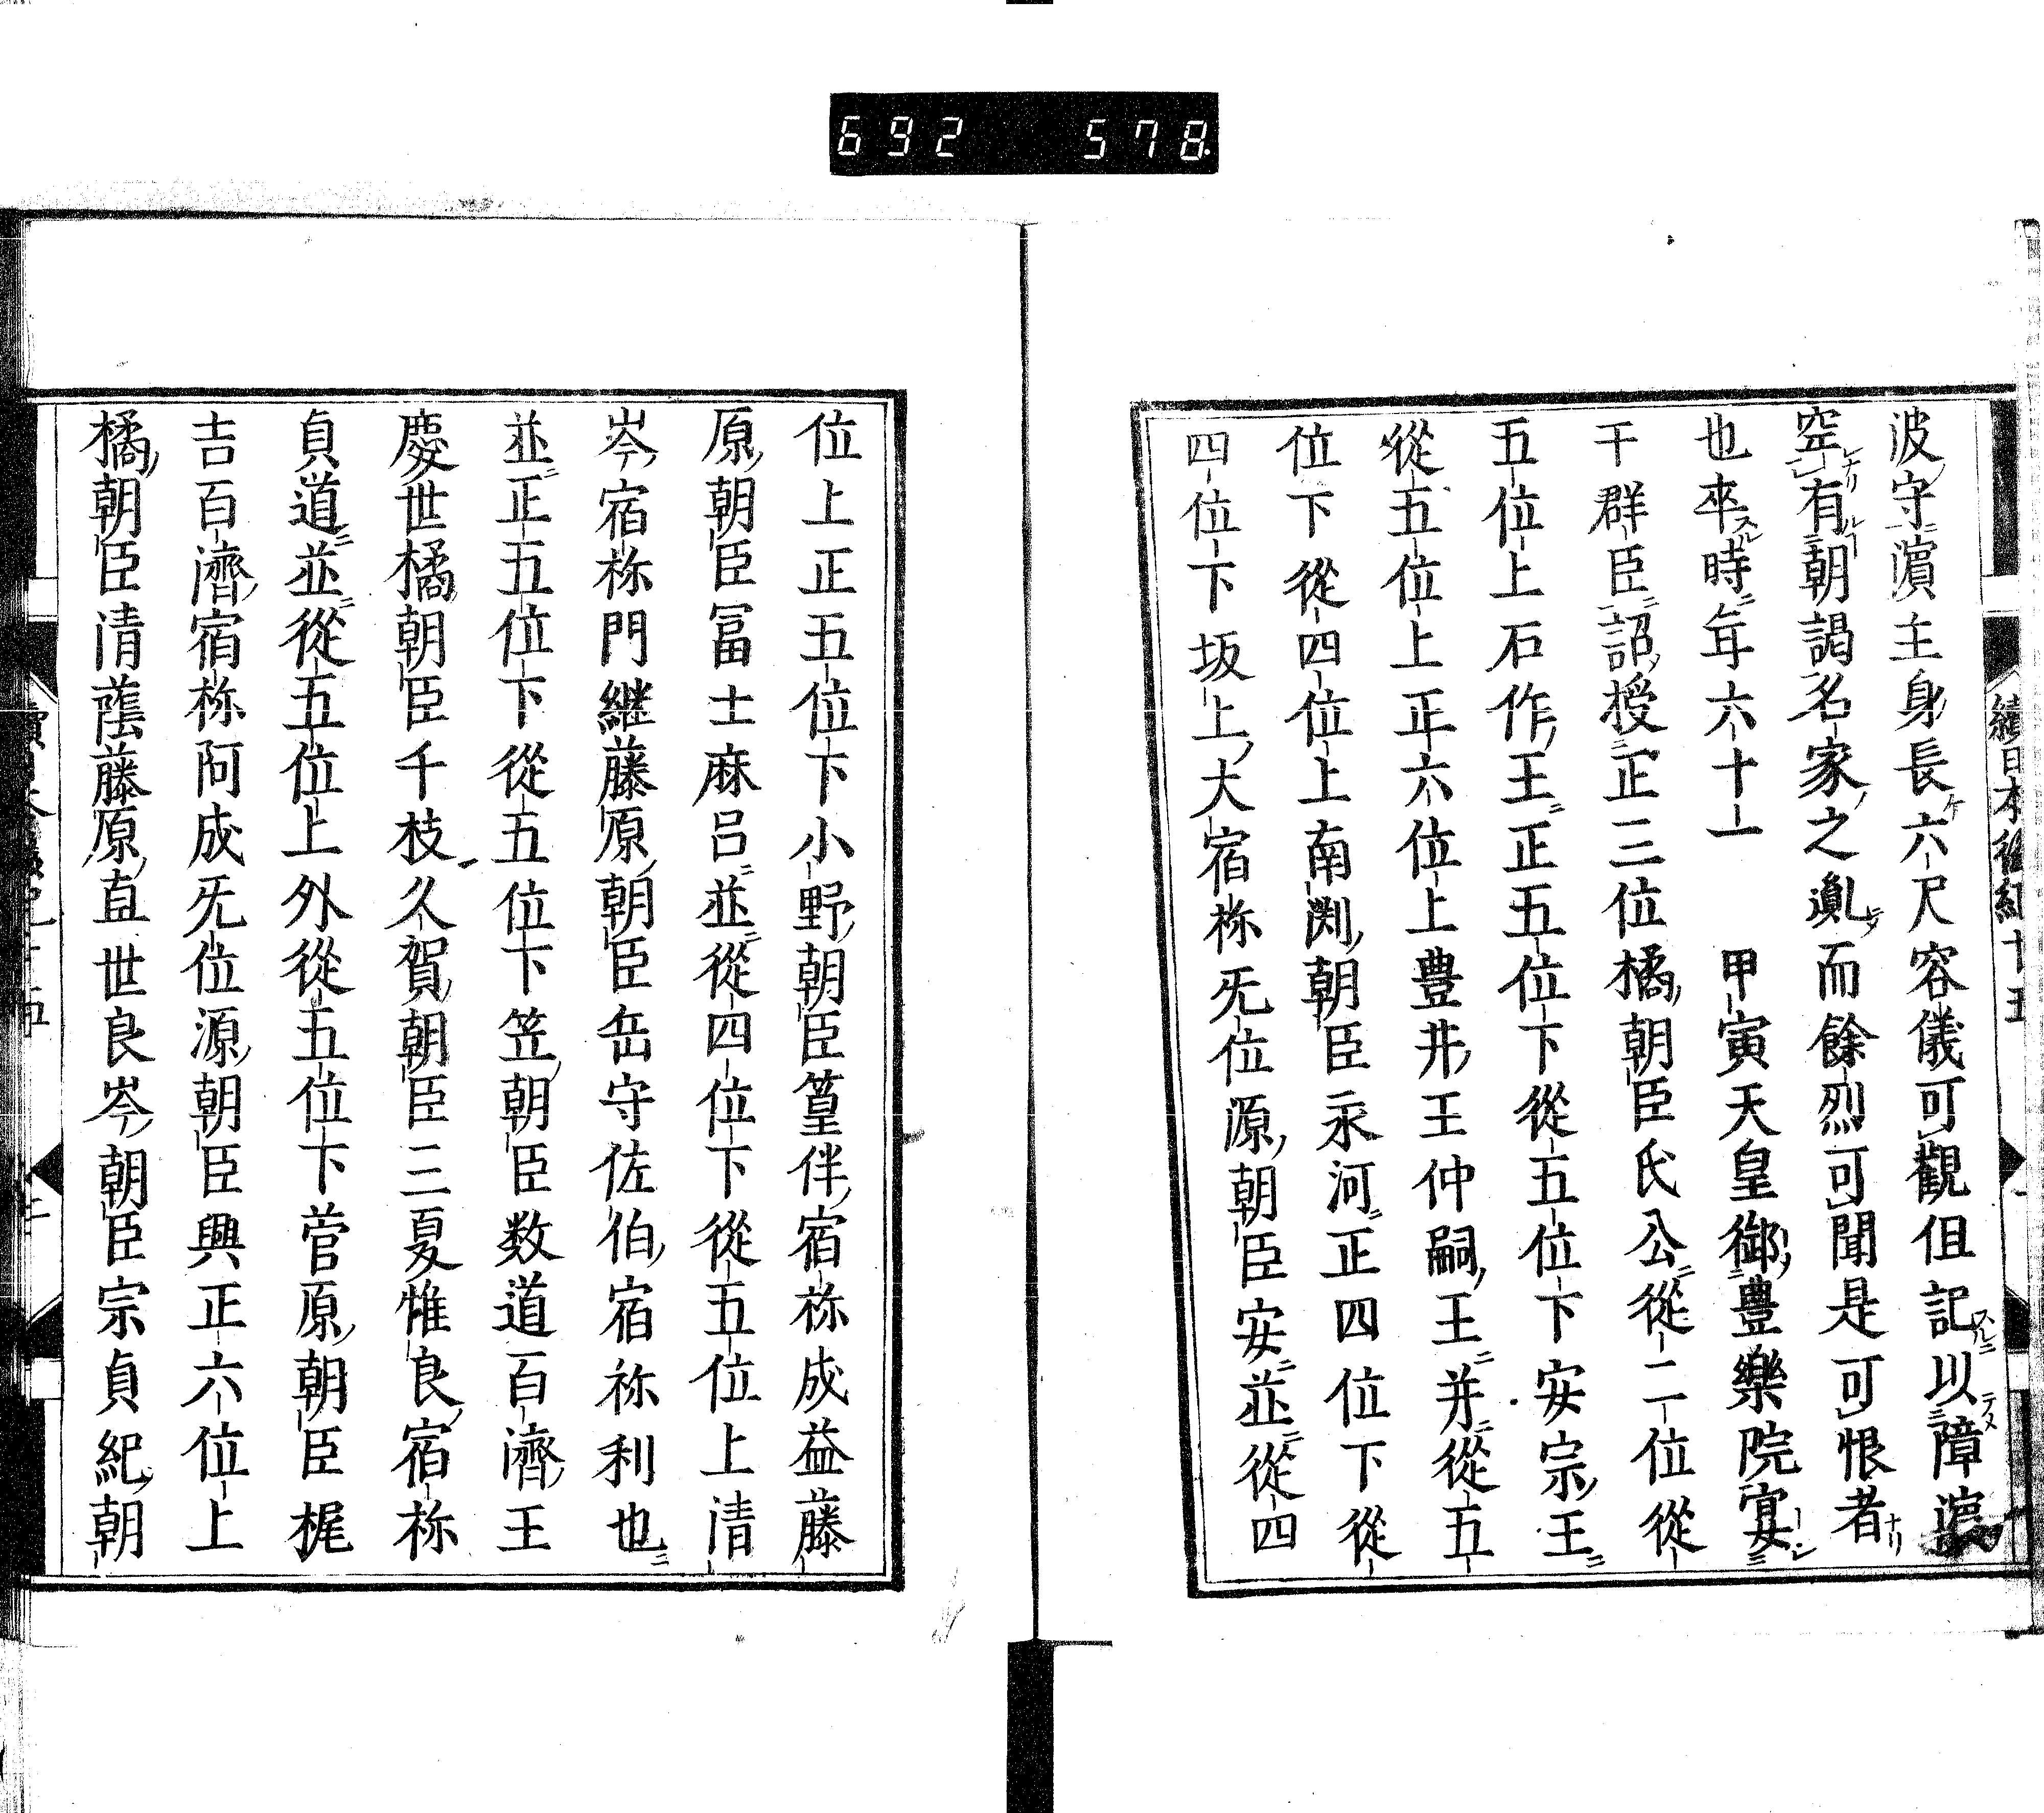 692 578
續日本後紀 十五
波守濵主身長六尺容儀可觀但記以障
空有朝謁名家之胤而餘烈可聞是可恨者
也卒時年六十一 甲寅天皇御豊樂院宴
于群臣詔授正三位橘朝臣氏公從二位從
五位上石作王正五位下從五位下安宗王
從五位上正六位上豊井王仲嗣王并從五
位下從四位上南渕朝臣永河正四位下從
四位下坂上大宿祢旡位源朝臣安並從四
位上正五位下小野朝臣篁伴宿祢成益藤
原朝臣冨士麻呂並從四位下從五位上清
岑宿祢門継藤原朝臣岳守佐伯宿祢利也
並正五位下從五位下笠朝臣数道百濟王
慶世橘朝臣千枝久賀朝臣三夏惟良宿祢
貞道並從五位上外從五位下菅原朝臣梶
吉百濟宿祢阿成旡位源朝臣興正六位上
橘朝臣清蔭藤原直世良岑朝臣宗貞紀朝